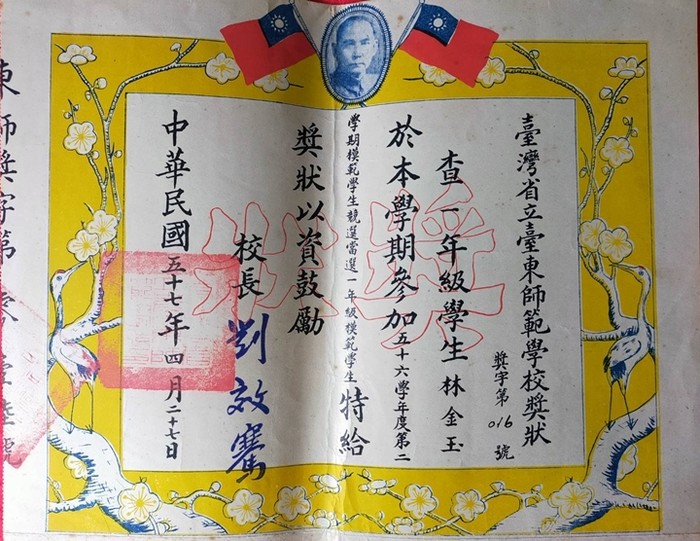 臺灣省立臺東師範學校獎狀
獎字第016號
查一年級學生林金玉
於本學期參加五十六學年度第二
學期模範學生競選當選一年級模範學生特給
獎狀以資鼓勵
校長劉效騫
中華民國五十七年四月二十七日
獎狀
東師獎字第零壹陸號